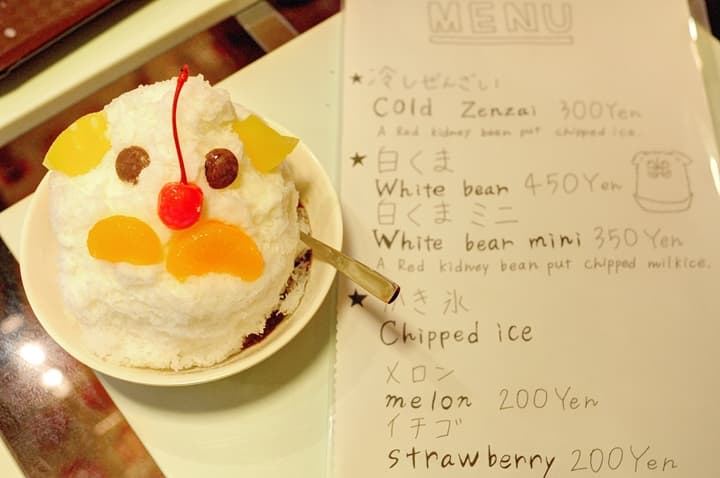 MENU
★冷しぜんざい
Cold Zenzai 300Yen
A Red kidney been put chipped ice.
★白くま
White bear 450Yen
白くま ミニ
White bear mini 350Yen
A Red kidney bean put chipped milkice.
★かき氷
Chipped ice
メロン
melon 200Yen
イチゴ
strawberry 200Yen